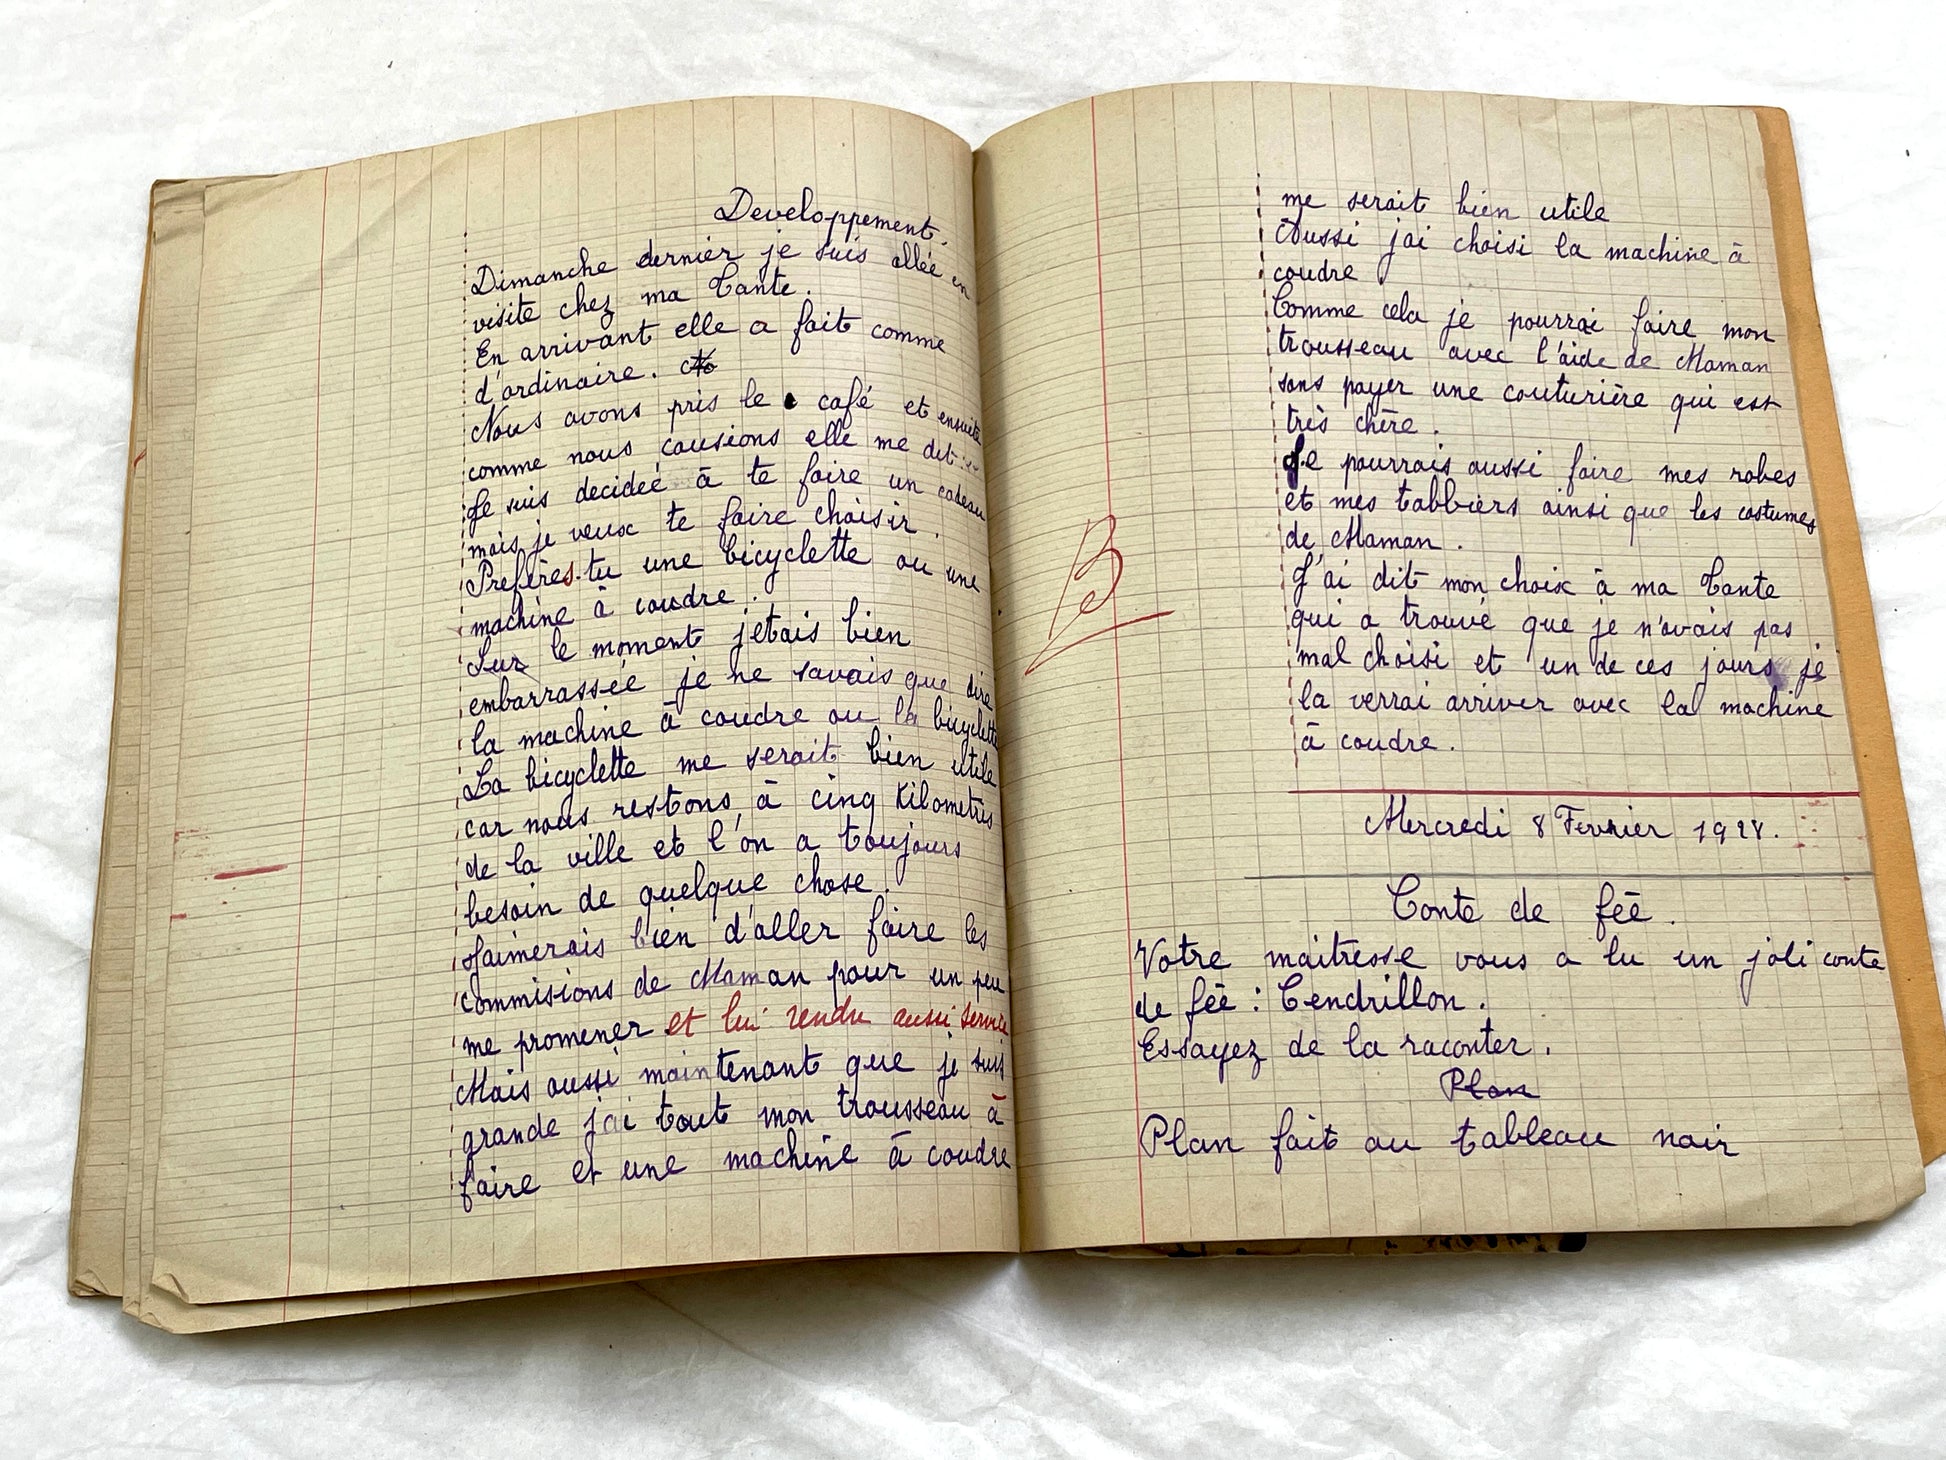 Developpement.
Dimanche dernier je suis allée en
visite chez ma Tante.
En arrivant elle a fait comme
d'ordinaire.
Nous avons pris le café et ensuite
comme nous causions elle me dit :
Je suis decidée à te faire un cadeau
mais je veux te faire choisir.
Preferes-tu une bicyclette ou une
machine à coudre.
Sur le moment jetais bien
embarrassée je ne savais que dire
la machine à coudre ou la bicyclette
La bicyclette me serait bien utile
car nous restons à cinq Kilometres
de la ville et l'on a toujours
besoin de quelque chose.
Jaimerais bien d'aller faire les
commisions de Maman pour un peu
me promener et lui rendre aussi service
Mais aussi maintenant que je suis
grande jai tout mon trousseau à
faire et une machine à coudre
me serait bien utile
Aussi jai choisi la machine à
coudre
Comme cela je pourrai faire mon
trousseau avec l'aide de Maman
sans payer une couturière qui est
très chère.
Je pourrais aussi faire mes robes
et mes tabbiers ainsi que les costumes
de Maman.
J'ai dit mon choix à ma Tante
qui a trouvé que je n'avais pas
mal choisi et un de ces jours je
la verrai arriver avec la machine
à coudre.
B
Mercredi 8 Fevrier 1928.
Conte de fée.
Votre maitresse vous a lu un joli conte
de fée : Cendrillon.
Essayez de la raconter.
Plan
Plan fait au tableau noir